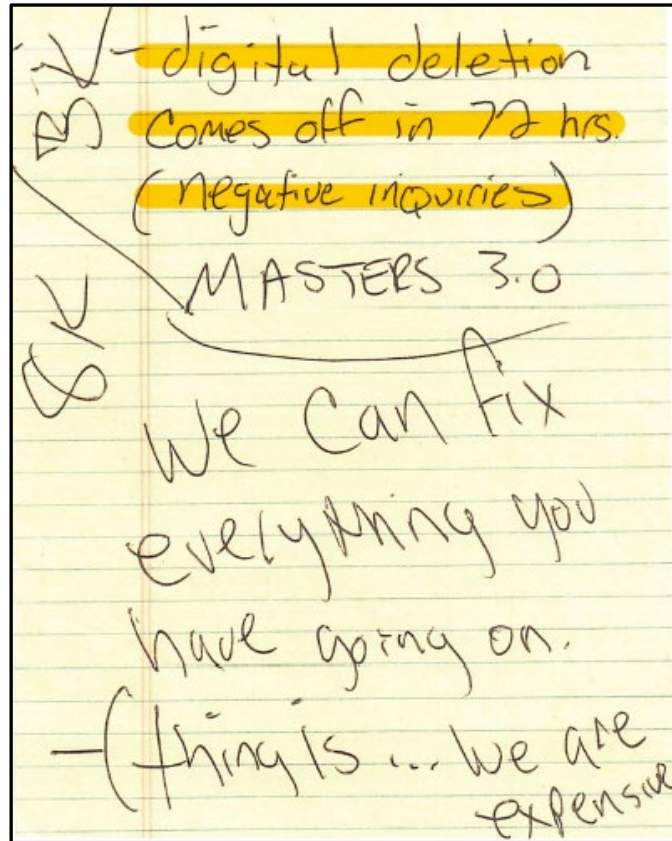 3K - digital deletion
comes off in 72 hrs.
(negative inquiries)
MASTERS 3.0
8K
We can fix
everything you
have going on.
- (thing is ... we are
expensive